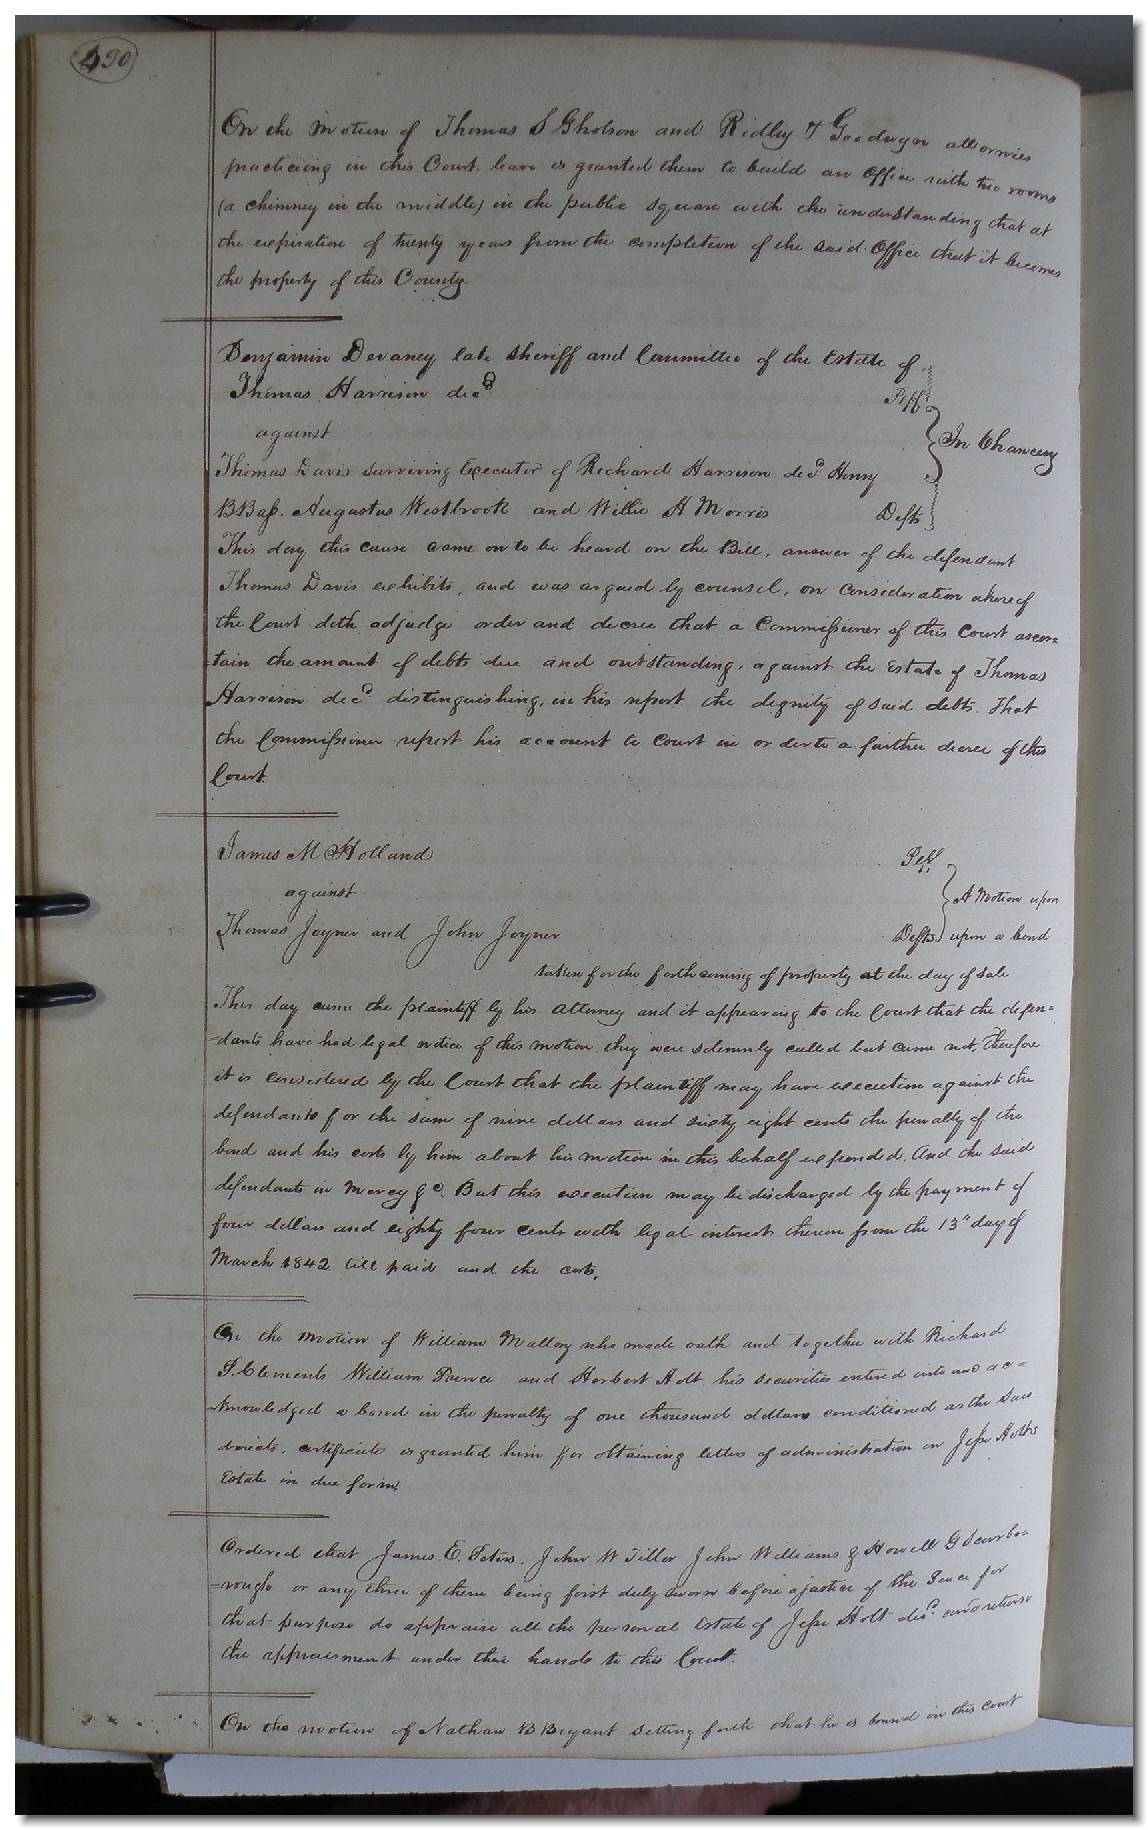 490
On the motion of Thomas S Gholson and Ridley & Goodwyn attornies
practicing in this Court leave is granted them to build an Office with two rooms
(a chimney in the middle) in the public square with the understanding that at
the expiration of twenty years from the completion of the said Office that it becomes
the property of this County.
Benjamin Devaney late Sheriff and Committee of the Estate of
Thomas Harrison decd Plff
against In Chancery
Thomas Davis surviving Executor of Richard Harrison decd Henry
B Bass. Augustus Westbrook and Willie H Morris Defts
This day this cause came on to be heard on the Bill, answer of the defendant
Thomas Davis exhibits, and was argued by counsel, on consideration whereof
the Court doth adjudge order and decree that a Commissioner of this Court ascer=
tain the amount of debts due and outstanding, against the Estate of Thomas
Harrison decd distinguishing, in his report the dignity of said debts. That
the Commissioner report his account to Court in order to a further decree of this
Court.
James M Holland Plff
against A Motion upon
Thomas Joyner and John Joyner Defts upon a bond
taken for the forthcoming of property at the day of sale
This day came the plaintiff by his attorney and it appearing to the Court that the defen=
=dants have had legal notice of this motion they were solemnly called but came not, therefore
it is considered by the Court that the plaintiff may have execution against the
defendants for the sum of nine dollars and sixty eight cents the penalty of the
bond and his costs by him about his motion in this behalf expended. And the said
defendants in Mercy &c. But this execution may be discharged by the payment of
four dollars and eighty four cents with legal interest thereon from the 13th day of
March 1842 till paid and the costs.
On the motion of William Mallory who made oath and together with Richard
P. Clements William Prince and Herbert Holt his securities entered into and ac=
=knowledged a bond in the penalty of one thousand dollars conditioned as the law
directs, certificate is granted him for obtaining letters of administration on Jesse Holts
Estate in due form.
Ordered that James E. Peters, John W Tiller John Williams & Howell G Scarbo=
=rough or any three of them being first duly sworn before a justice of the Peace for
that purpose do appraise all the personal Estate of Jesse Holt decd. and return
the appraisment under their hands to this Court.
On the motion of Nathan B Bryant setting forth that he is bound in this court